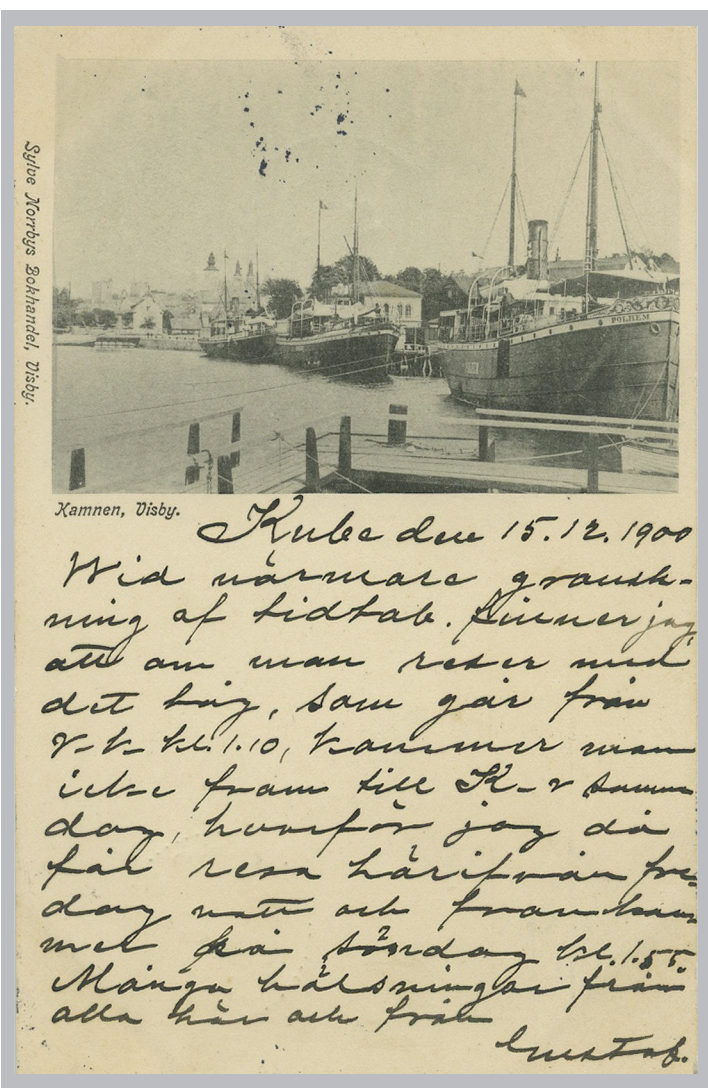 Sylve Norrbys Bokhandel, Visby.
POLHEM
Hamnen, Visby.
Kube den 15.12.1900
Wid närmare gransk-
ning af tidtab. finner jag
att om man reser med
det tåg, som går från
kl. 1.10, kommer man
icke fram till K-r samma
dag, hvarför jag då
får resa härifrån fre-
dag natt och framkom-
mer på söndag kl. 1.55
Många hälsningar från
alla här och från
Gustaf.